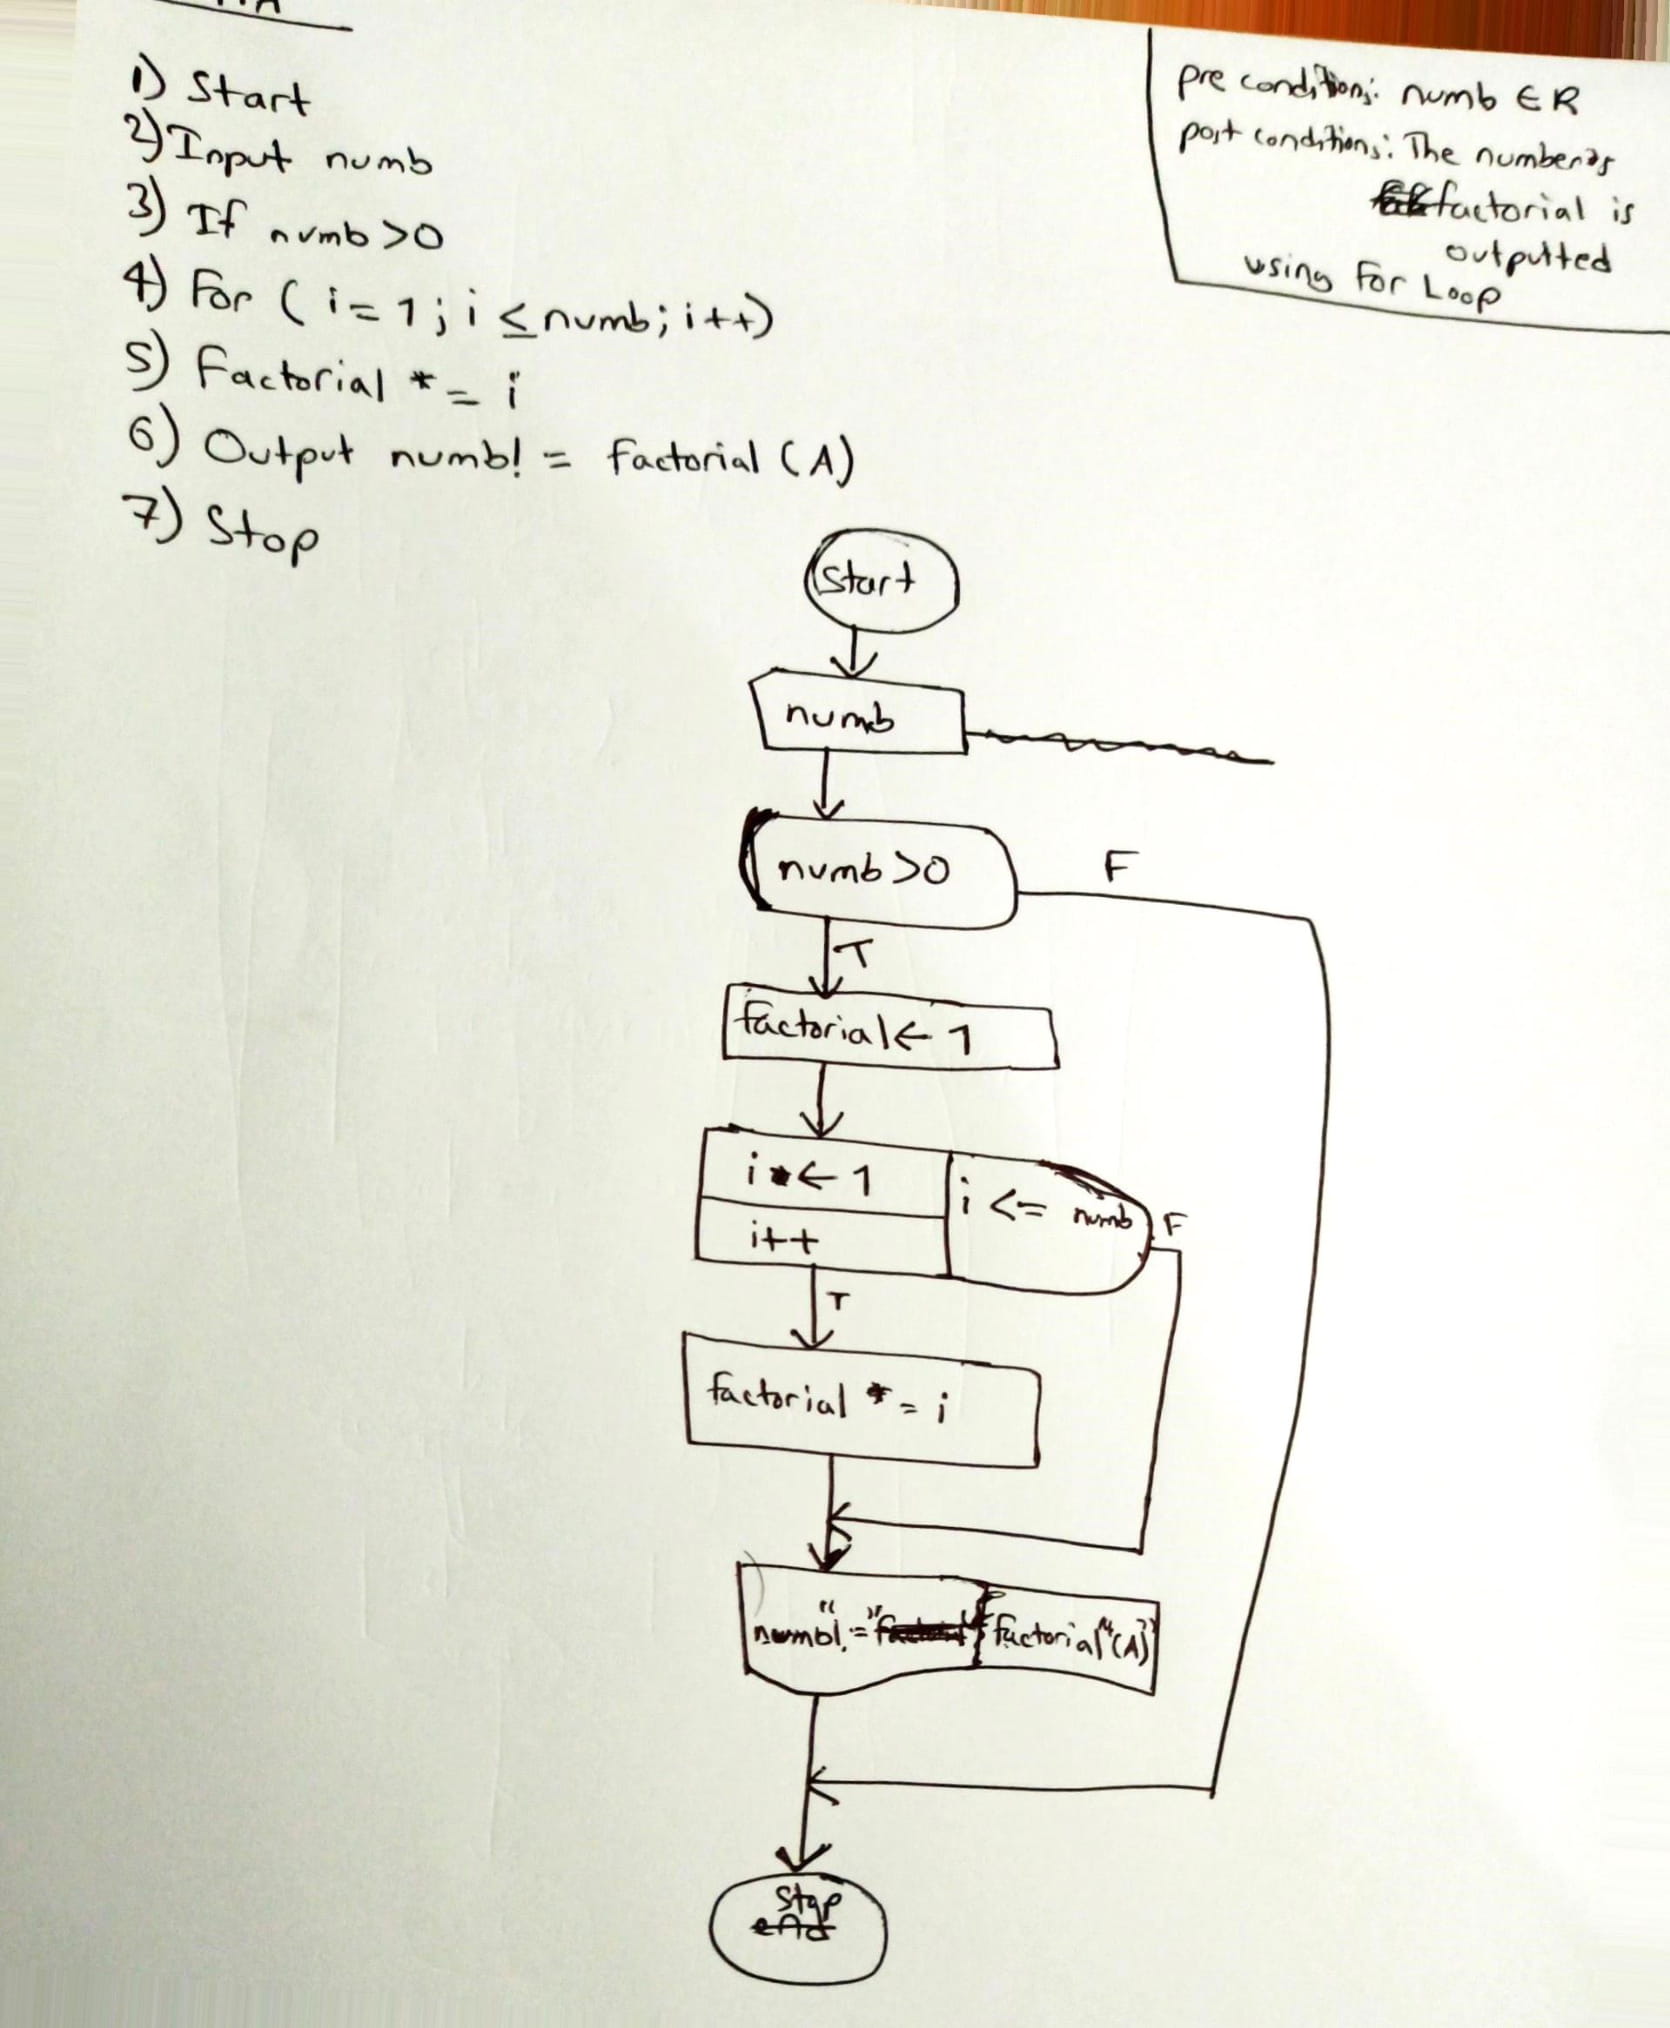 1) Start
2) Input numb
3) If numb>0
4) For ( i = 1 ; i ≤ numb; i++)
5) Factorial *= i
6) Output numb! = factorial (A)
7) Stop
pre conditions: numb ∈ R
post conditions: The number's
factorial is
outputted
using For Loop
start
numb
numb >0
F
T
factorial ← 1
i ← 1
i <= numb
F
i++
T
factorial *= i
numb"! =" factorial "(A)"
stop
end